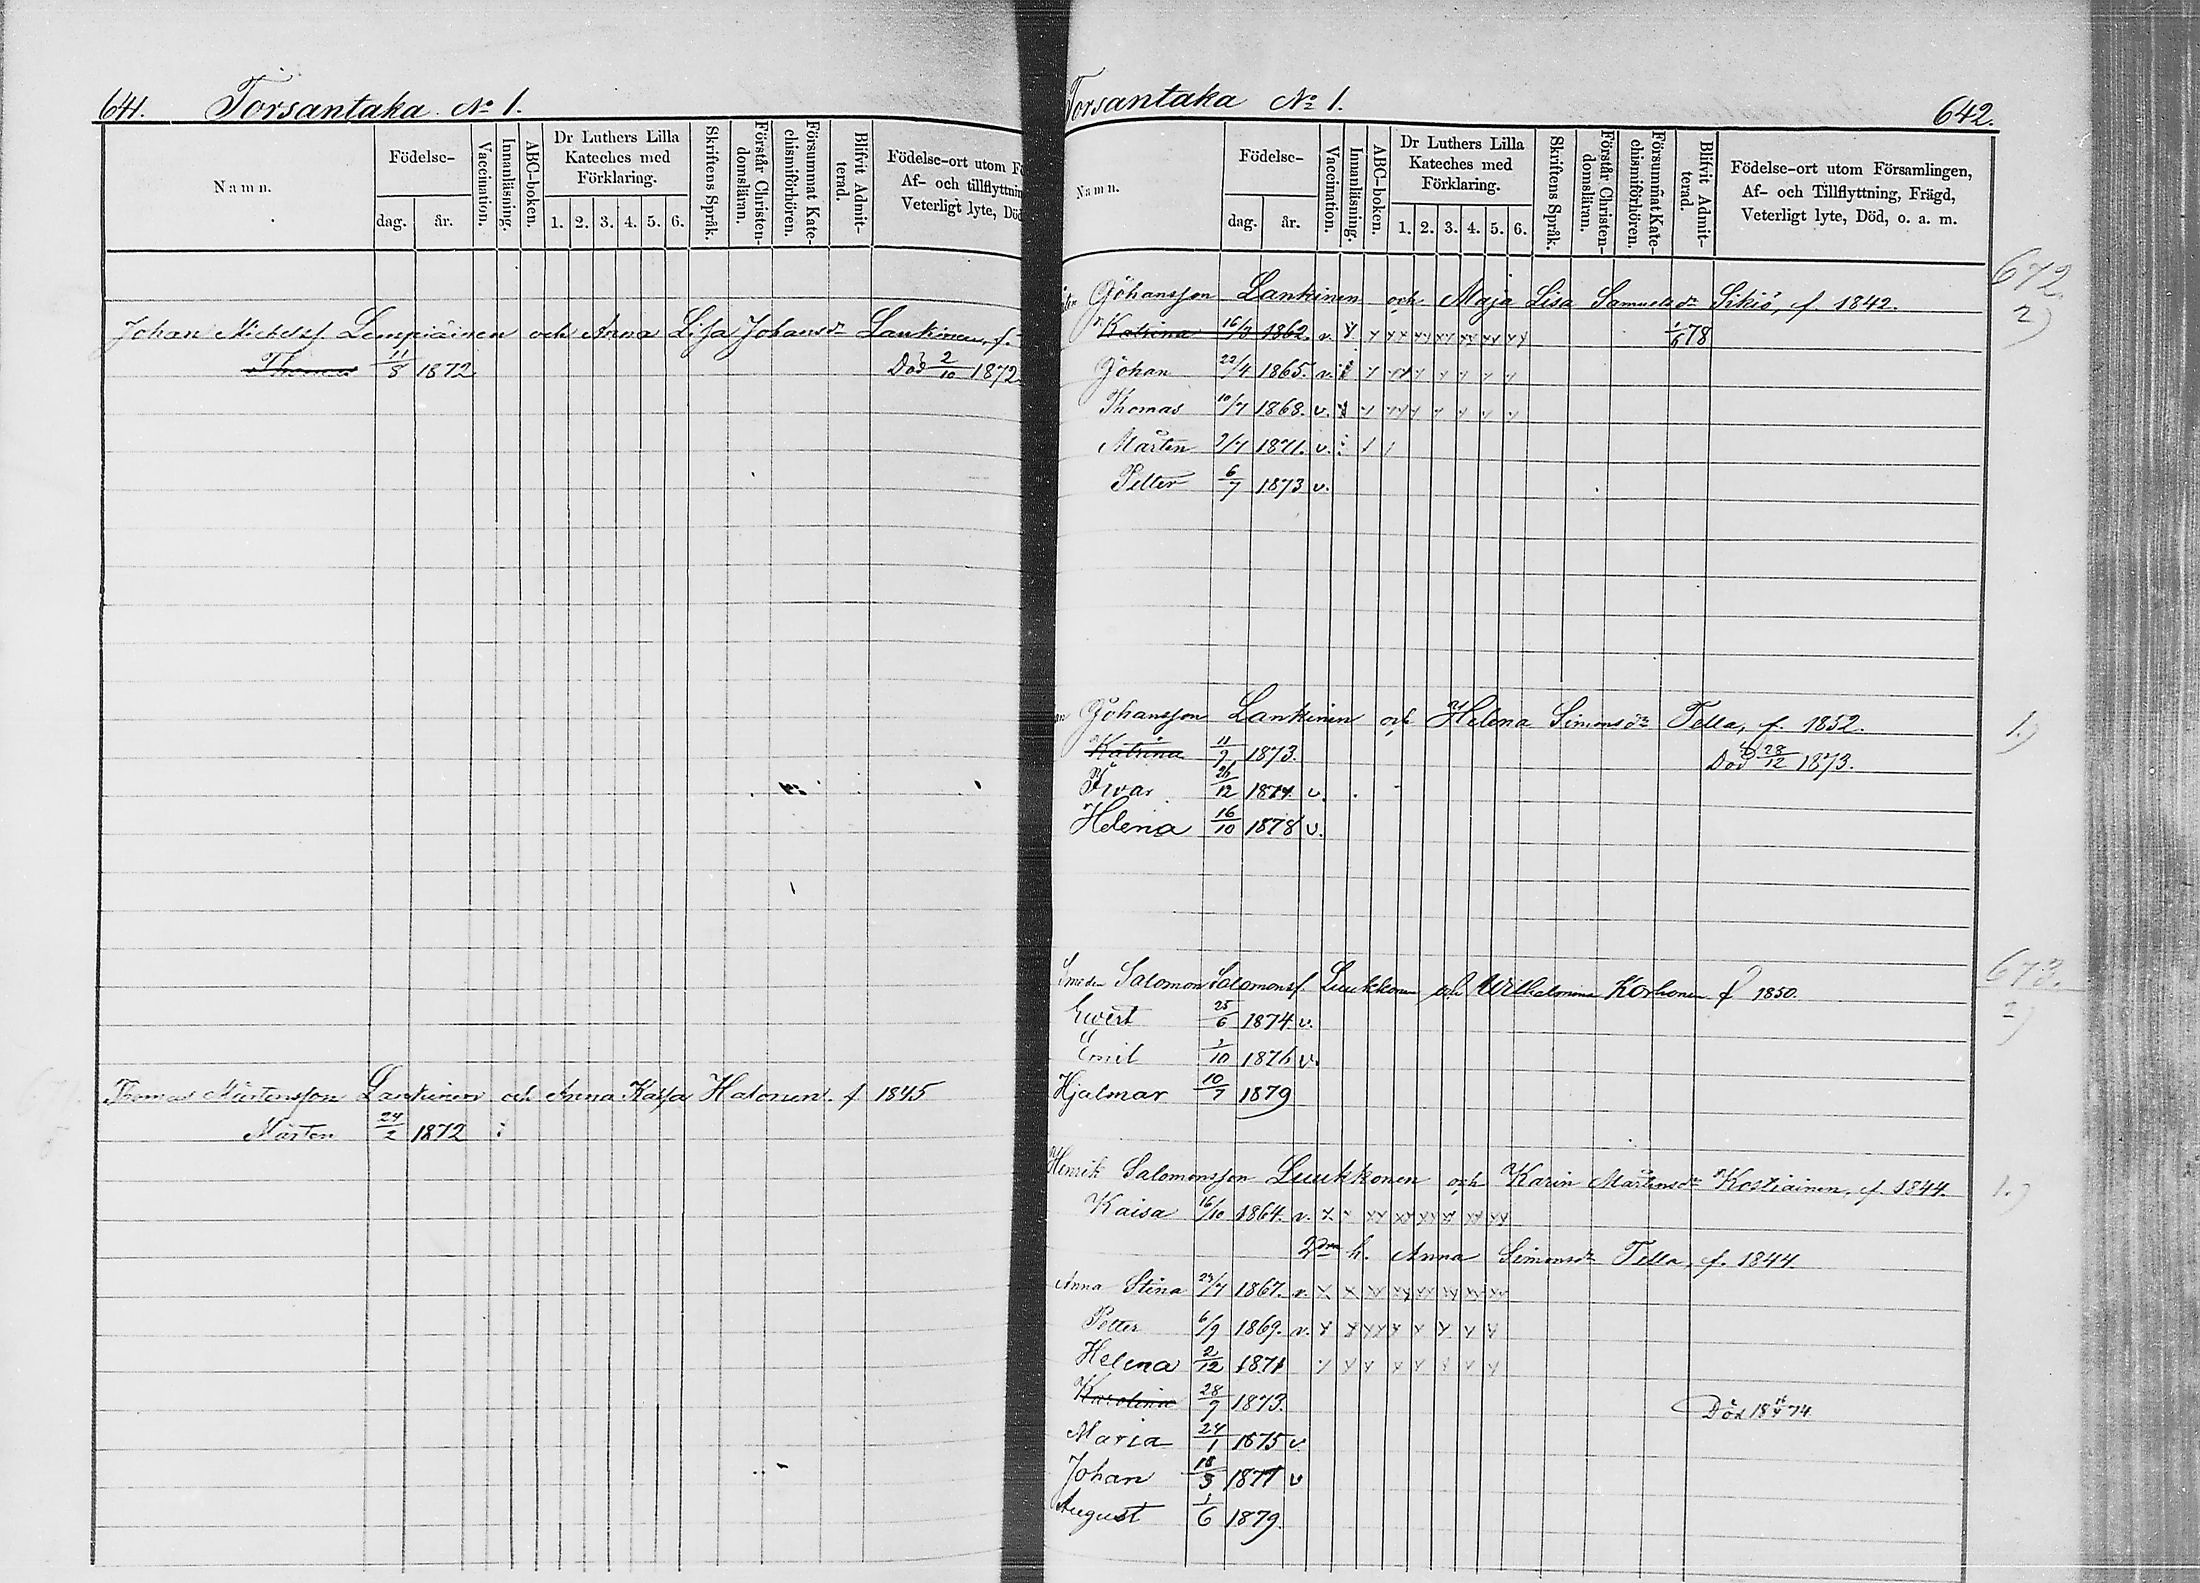 641. Torsantaka. No 1.
Namn.
Födelse-
dag. år.
Vaccination.
Innanläsning.
ABC-boken.
Dr Luthers Lilla
Kateches med
Förklaring.
1. 2. 3. 4. 5. 6.
Skriftens Språk.
Förstår Christen-
domsläran.
Försummat Kate-
chismiförhören.
Blifvit Admit-
terad.
Födelse-ort utom Fö
Af- och tillflyttnin
Veterligt lyte, Död
Johan Mickelss. Lempiäinen och Anna Lisa Johansdr Lankinen, f.
Thomas 11/5 1872 Död 2/10 1872
Thomas Mårtensson Lankinen och Anna Kaisa Halonen. f 1845
Mårten 24/2 1872
Torsantaka No 1. 642.
Namn.
Födelse-
dag. år.
Vaccination.
Innanläsning.
ABC-boken.
Dr Luthers Lilla
Kateches med
Förklaring.
1. 2. 3. 4. 5. 6.
Skriftens Språk.
Förstår Christen-
domsläran.
Försummat Kate-
chismiförhören.
Blifvit Admit-
terad.
Födelse-ort utom Församlingen,
Af- och Tillflyttning, Frägd,
Veterligt lyte, Död, o. a. m.
Johansson Lankinen och Maja Lisa Samuelsdr Sikiö, f. 1842. 672.
2)
Katrina 1862. v. 78
Johan 22/4 1865. v.
Thomas 10/7 1868. v.
Mårten 2/7 1871. v.
Petter 6/7 1873 v.
Johansson Lankinen och Helena Simonsdr Tella, f. 1852. 1.)
Katrina 11/9 1873. Död 28/12 1873.
Ivar 26/12 1874. v.
Helena 16/10 1878 v.
673.
Smeden Salomon Salomonss. Luukkonen och Wilhelmina Korhonen f 1850.
2)
Evert 25/6 1874 v.
Emil 1/10 1876 v.
Hjalmar 10/7 1879
Henrik Salomonsson Luukkonen och Karin Mårtensdr Kostiainen, f. 1844. 1.)
Kaisa 16/10 1864. v.
2dra h. Anna Simonsdr Tella, f. 1844.
Anna Stina 29/7 1867. v.
Petter 6/9 1869. v.
Helena 2/12 1871
Karolina 28/9 1873. Död 74
Maria 24/1 1875 v
Johan 18/3 1877 v
August 1/6 1879.